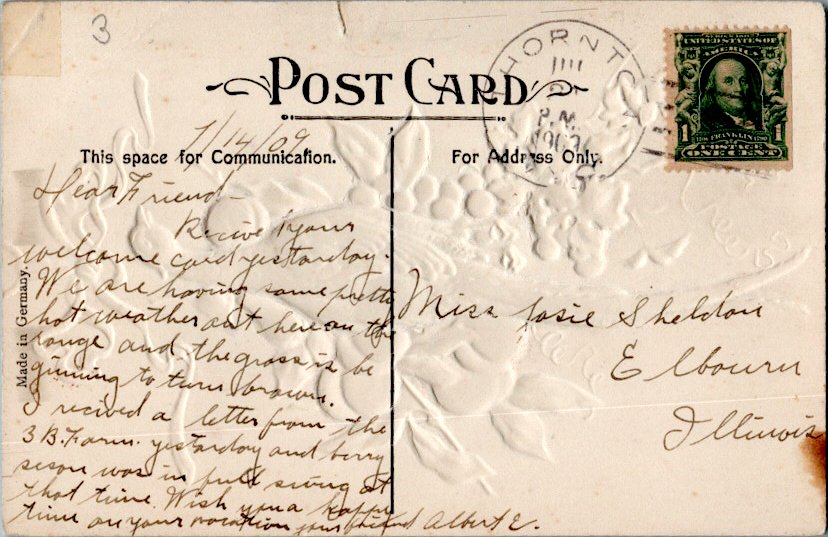 3
POST CARD
THORNTO
P.M.
1909
UNITED STATES OF
AMERICA
1 FRANKLIN 1
POSTAGE
ONE CENT
7/14/09
This space for Communication.
For Address Only.
Made in Germany.
Dear Friend
Recive yours
welcome card yestarday.
We are having some pretty
hot weather out here on the
range and the grass is be
ginning to turn brown.
I recived a letter from the
3 B. Farm. yestarday and berry
seson was in full swing at
that time. Wish you a happy
time on your vacation your friend Albert E.
Miss Josie Sheldon
Elbourn
Illinois